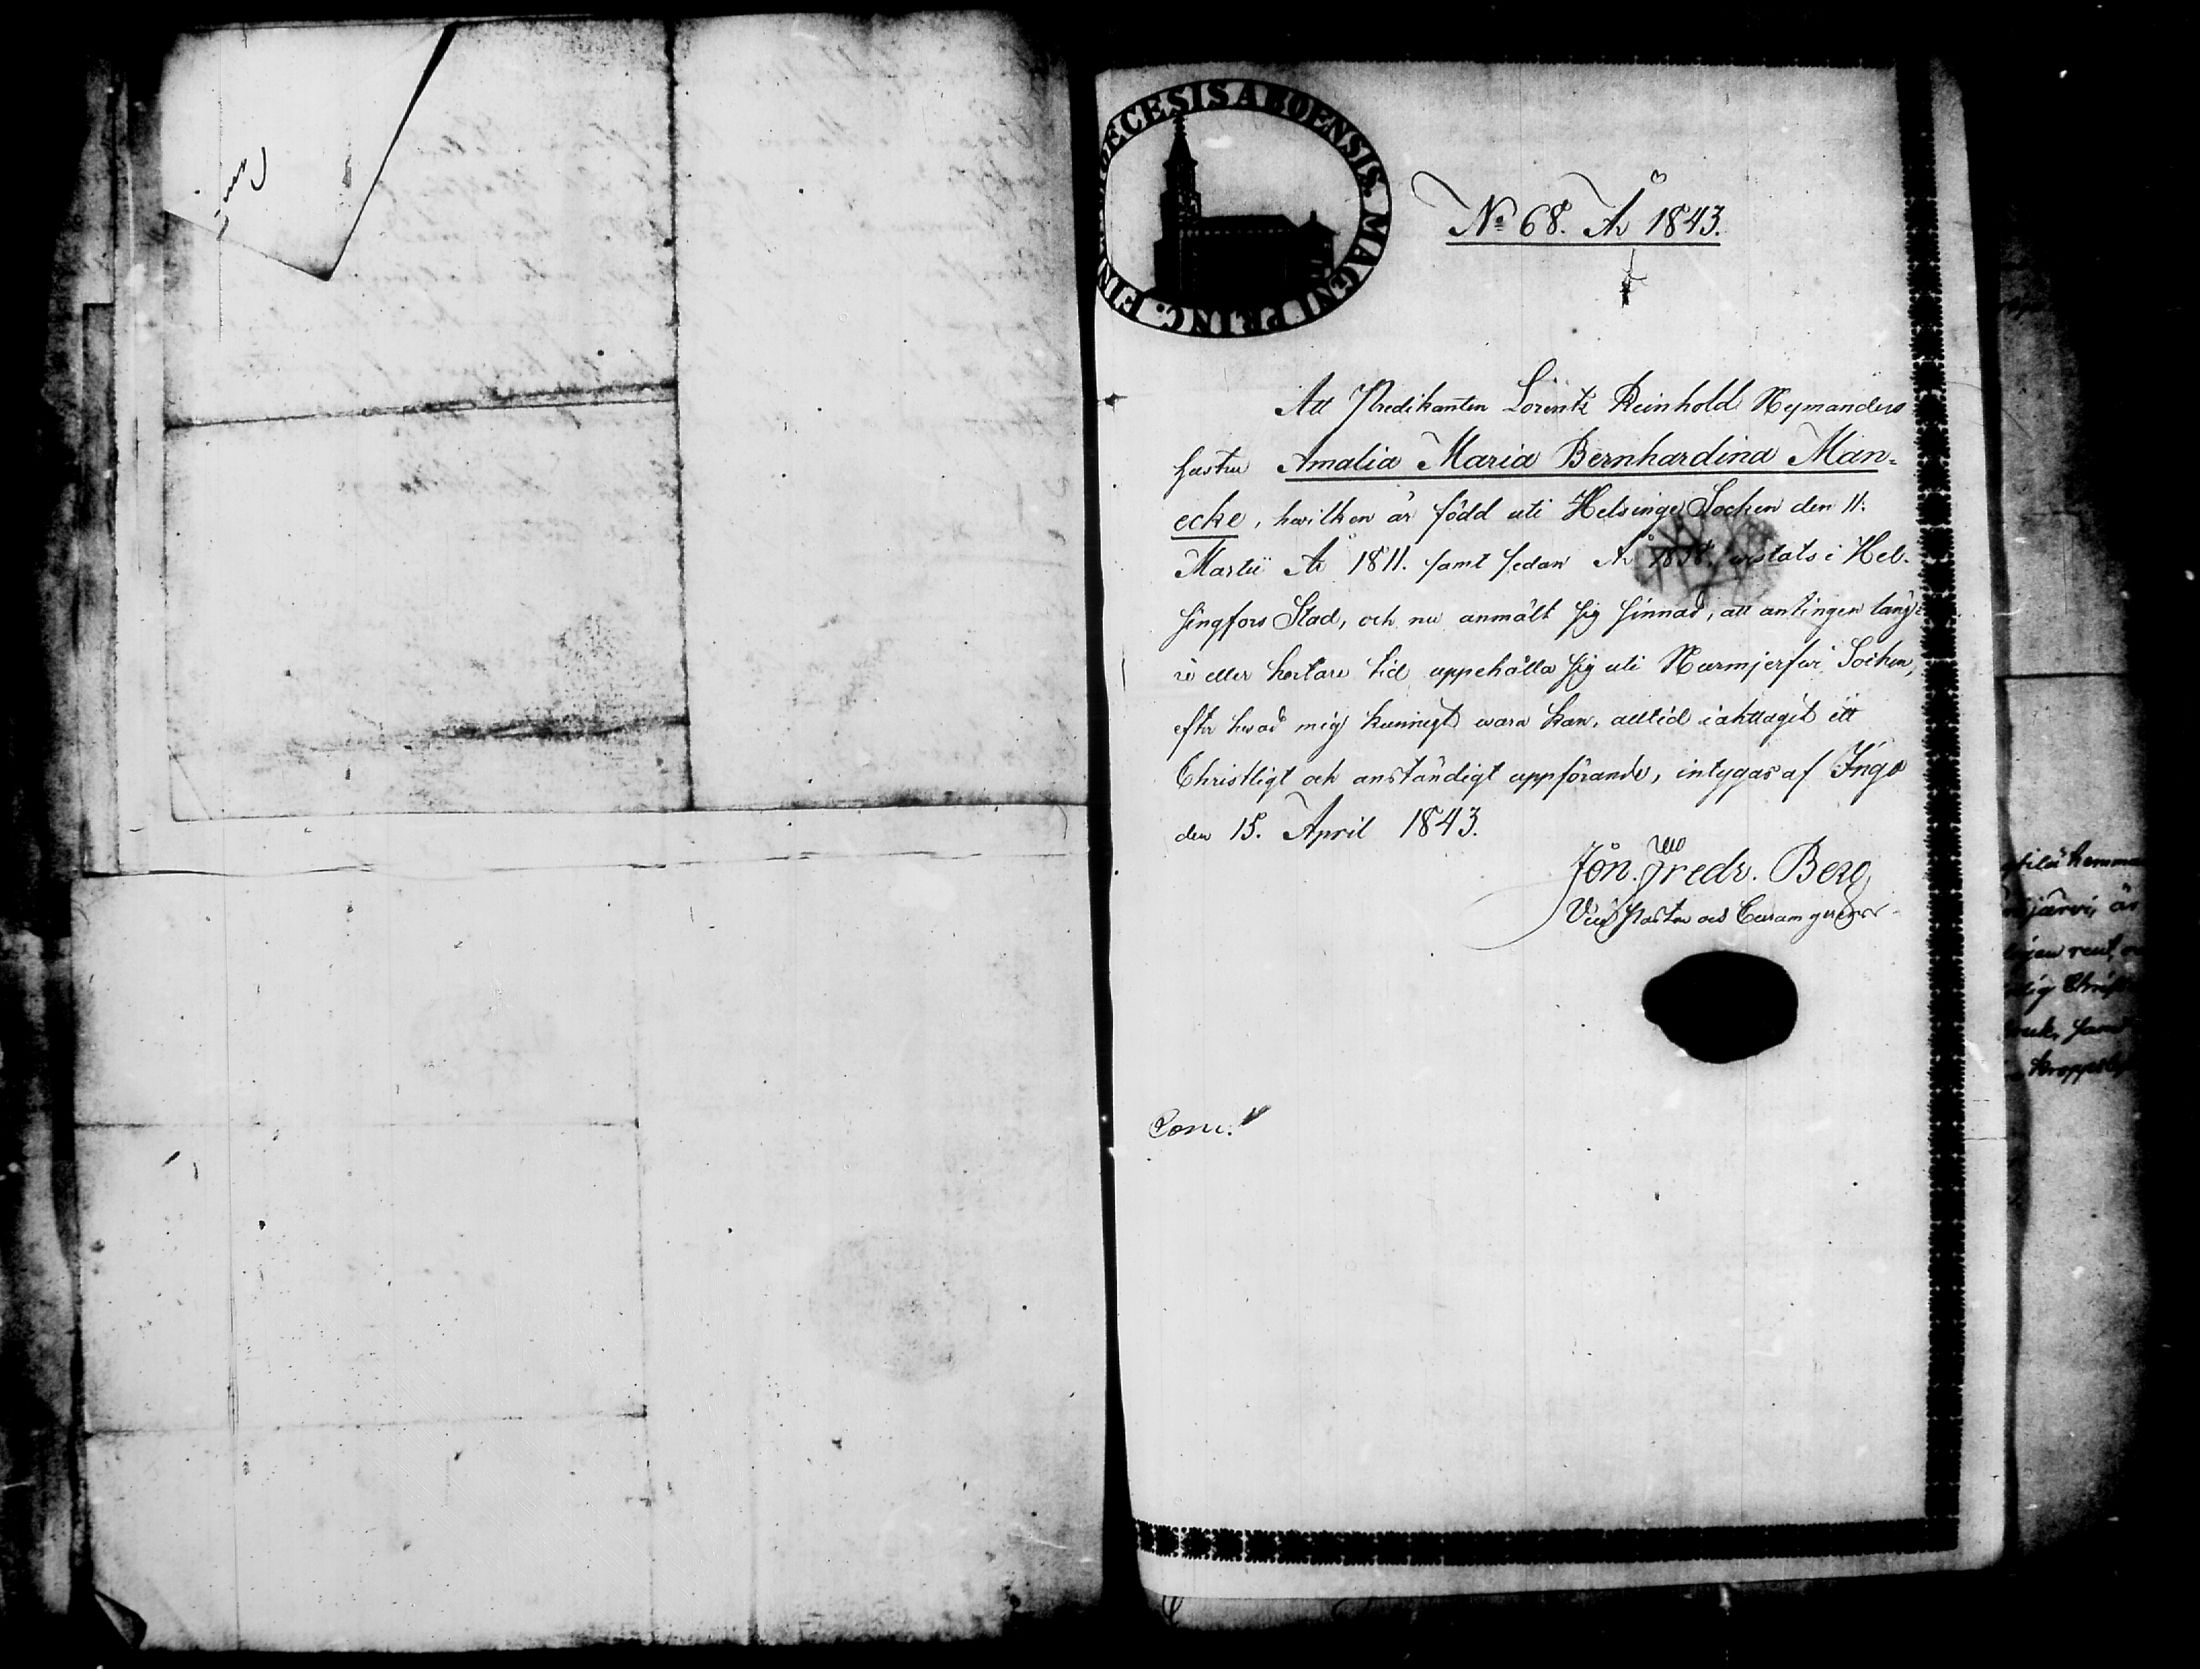 DIOECESIS ABOENSIS. MAGNI PRINC. FIN
No 68. År 1843.
Att Predikanten Lorentz Reinhold Nymanders
hustru Amalia Maria Bernhardina Man=
ecke, hwilken är född uti Helsinge Socken den 11.
Martii År 1811. samt sedan År wistats i Hel-
singfors Stad, och nu anmält sig sinnad, att antingen läng-
re eller kortare tid uppehålla sig uti Nurmjerfwi Socken,
efter hwad mig kunnigt wara kan, alltid iakttagit ett
Christligt och anständigt uppförande, intygas af Ingo
den 15. April 1843.
Jon. Fredr. Berg
Vice Pastor ad Curam gerens
Conv.
hemma
järvi, är